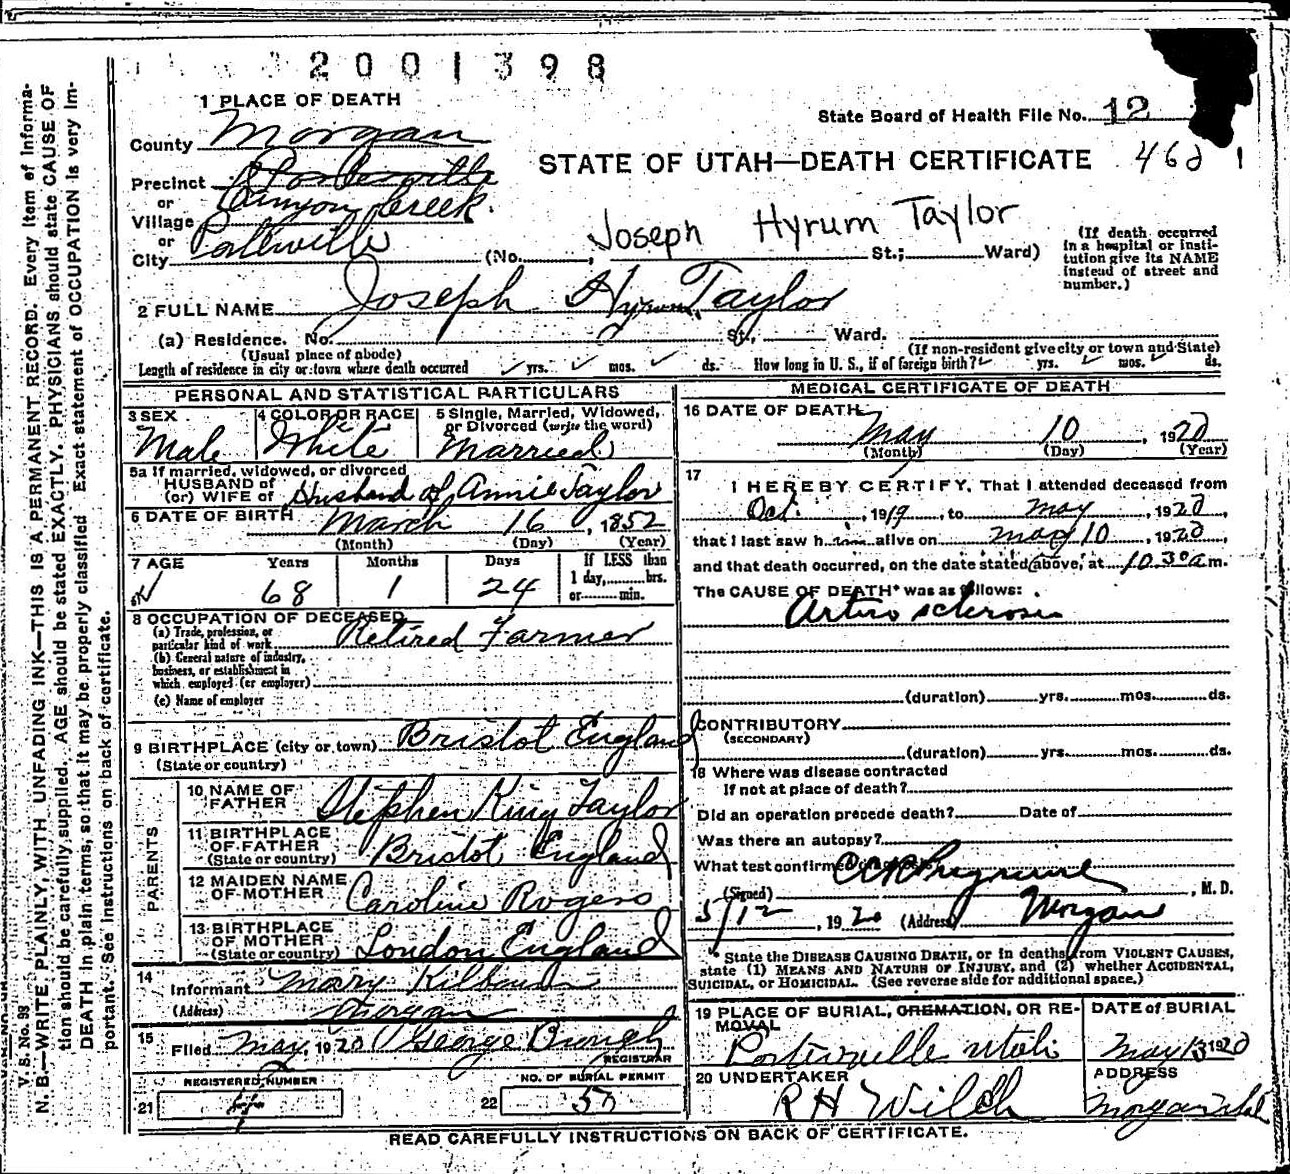 2001398
1 PLACE OF DEATH
State Board of Health File No. 12
County Morgan
STATE OF UTAH—DEATH CERTIFICATE 460
Precinct Porterville
or Canyon Creek.
Village
or Porterville
City (No. , Joseph Hyrum Taylor St.; Ward)
(If death occurred in a hospital or insti-
tution give its NAME
instead of street and
number.)
2 FULL NAME Joseph Hyrum Taylor
(a) Residence. No. St., Ward.
(Usual place of abode) (If non-resident give city or town and State)
Length of residence in city or town where death occurred yrs. mos. ds. How long in U. S., if of foreign birth? yrs. mos. ds.
PERSONAL AND STATISTICAL PARTICULARS
3 SEX Male
4 COLOR OR RACE White
5 Single, Married, Widowed,
or Divorced (write the word)
Married
5a If married, widowed, or divorced
HUSBAND of
(or) WIFE of Husband of Annie Taylor
6 DATE OF BIRTH March 16, 1852
(Month) (Day) (Year)
7 AGE Years Months Days If LESS than
68 1 24 1 day, hrs.
or min.
8 OCCUPATION OF DECEASED
(a) Trade, profession, or
particular kind of work Retired Farmer
(b) General nature of industry,
business, or establishment in
which employed (or employer)
(c) Name of employer
9 BIRTHPLACE (city or town) Bristol England
(State or country)
PARENTS
10 NAME OF
FATHER Stephen King Taylor
11 BIRTHPLACE
OF FATHER
(State or country) Bristol England
12 MAIDEN NAME
OF MOTHER Caroline Rogers
13 BIRTHPLACE
OF MOTHER
(State or country) London England
14
Informant Mary
(Address) Morgan
15
Filed May, 1920 George Brough
REGISTRAR
REGISTERED NUMBER
21
NO. OF BURIAL PERMIT
22 50
MEDICAL CERTIFICATE OF DEATH
16 DATE OF DEATH
May 10, 1920
(Month) (Day) (Year)
17
I HEREBY CERTIFY, That I attended deceased from
Oct. , 1919, to May , 1920,
that I last saw him alive on May 10, 1920,
and that death occurred, on the date stated above, at 10.30 a m.
The CAUSE OF DEATH* was as follows:
Arterio sclerosis
(duration) yrs. mos. ds.
CONTRIBUTORY
(SECONDARY)
(duration) yrs. mos. ds.
18 Where was disease contracted
If not at place of death?
Did an operation precede death? Date of
Was there an autopsy?
What test confirmed
(Signed) , M. D.
5/12, 1920 (Address) Morgan
* State the DISEASE CAUSING DEATH, or in deaths from VIOLENT CAUSES,
state (1) MEANS AND NATURE OF INJURY, and (2) whether ACCIDENTAL,
SUICIDAL, or HOMICIDAL. (See reverse side for additional space.)
19 PLACE OF BURIAL, CREMATION, OR RE-
MOVAL
Porterville Utah
DATE of BURIAL
May 13 1920
20 UNDERTAKER
R H Welch
ADDRESS
Morgan Utah
READ CAREFULLY INSTRUCTIONS ON BACK OF CERTIFICATE.
V. S. No. 99
N. B.—WRITE PLAINLY, WITH UNFADING INK—THIS IS A PERMANENT RECORD. Every item of informa-
tion should be carefully supplied. AGE should be stated EXACTLY. PHYSICIANS should state CAUSE OF
DEATH in plain terms, so that it may be properly classified. Exact statement of OCCUPATION is very im-
portant. See instructions on back of certificate.